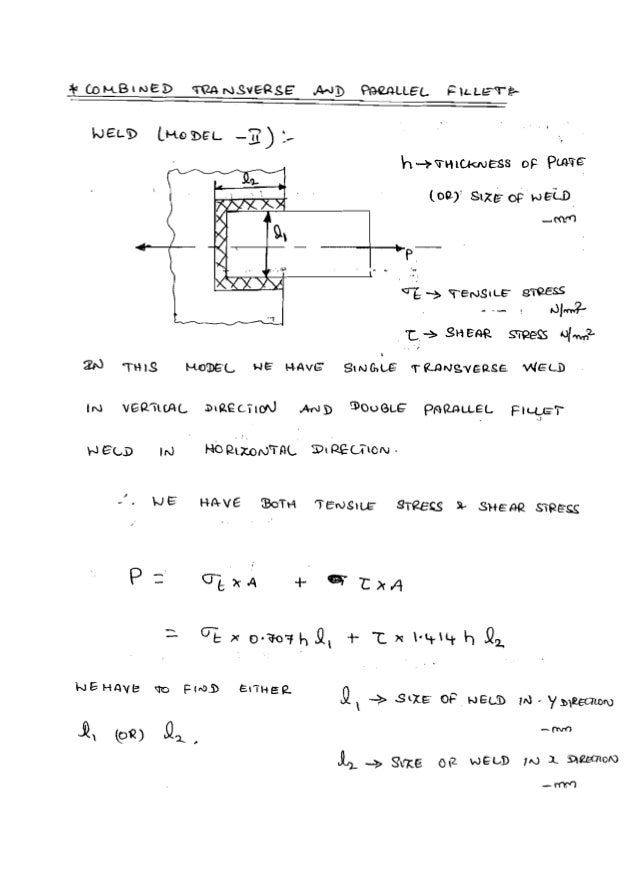 * COMBINED TRANSVERSE AND PARALLEL FILLET *
WELD (MODEL - II) :-
h → THICKNESS OF PLATE
(OR) SIZE OF WELD
- mm
l2
l1
P
σt → TENSILE STRESS
N/mm²
τ → SHEAR STRESS N/mm²
IN THIS MODEL WE HAVE SINGLE TRANSVERSE WELD
IN VERTICAL DIRECTION AND DOUBLE PARALLEL FILLET
WELD IN HORIZONTAL DIRECTION.
∴ WE HAVE BOTH TENSILE STRESS & SHEAR STRESS
P = σt × A + τ × A
= σt × 0.707 h l1 + τ × 1.414 h l2
WE HAVE TO FIND EITHER
l1 (OR) l2.
l1 → SIZE OF WELD IN Y DIRECTION
- mm
l2 → SIZE OR WELD IN X DIRECTION
- mm